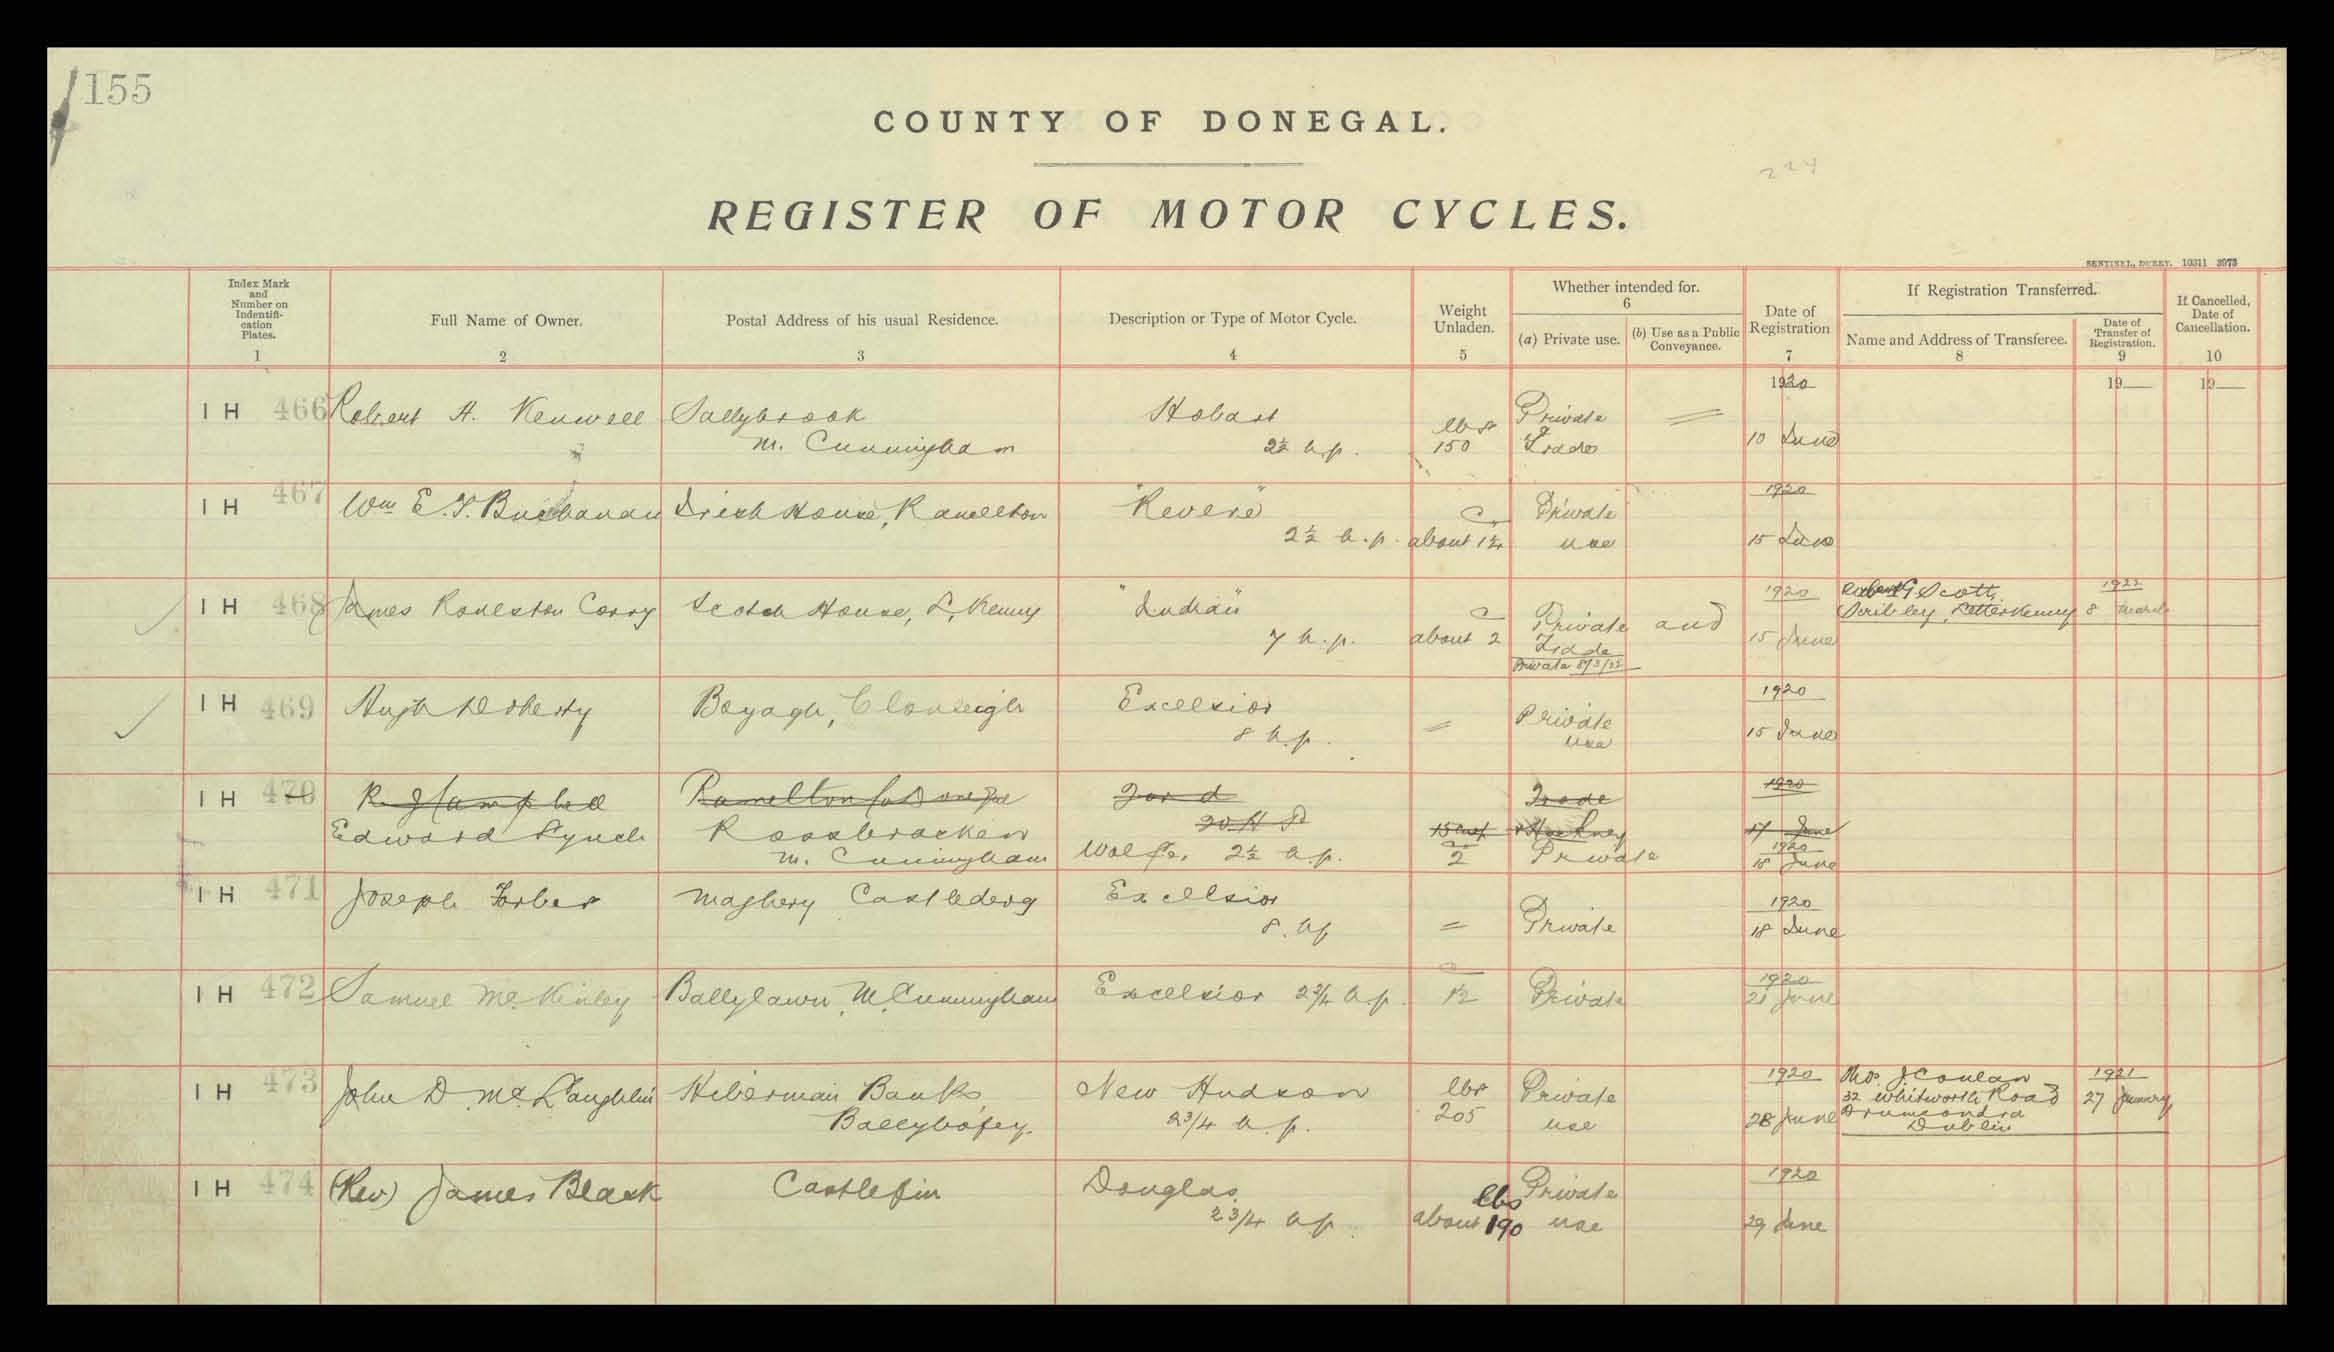 155
COUNTY OF DONEGAL.
224
REGISTER OF MOTOR CYCLES.
SENTINEL, DERRY. 10311 3973
Index Mark and Number on Indentifi-cation Plates. 1
Full Name of Owner. 2
Postal Address of his usual Residence. 3
Description or Type of Motor Cycle. 4
Weight Unladen. 5
Whether intended for. 6
(a) Private use.
(b) Use as a Public Conveyance.
Date of Registration 7
If Registration Transferred.
Name and Address of Transferee. 8
Date of Transfer of Registration. 9
If Cancelled, Date of Cancellation. 10
1920 19 19
IH 466 Robert A. Kenwell Sallybrook Hobart lbs Private =
M. Cunningham 2½ h.p. 150 & Trade 10 June
1920
IH 467 Wm E. T. Buchanan Irish House, Ramelton "Revere" C Private
2½ h.p. about 1¼ use 15 June
1920 Robert G Scott, 1922
IH 468 James Rouleston Corry Scotch House, L, Kenny "Indian" C Private and Scribley, Letterkenny 8 March
7 h.p. about 2 Trade 15 June
Private 8/3/22
1920
IH 469 Hugh Doherty Boyagh, Clonleigh Excelsior Private
8 h.p. = use 15 June
IH 470 R J Campbell Ramelton Co Donegal Ford Trade 1920
20 H P 15 cwt & Hackney 17 June
Edward Lynch Rossbracken C 1920
M. Cunningham Wolfe, 2½ h.p. 2 Private 18 June
IH 471 Joseph Forbes Maghery Castlederg Excelsior 1920
8. hp = Private 18 June
C 1920
IH 472 Samuel McKinley Ballylawn, M, Cunningham Excelsior 2¾ h.p. 1½ Private 21 June
1920 Thos J Conlan 1921
IH 473 John D. McLaughlin Hibernian Bank, New Hudson lbs Private 32 Whitworth Road 27 January
Ballybofey. 2¾ h.p. 205 use 28 June Drumcondra
Dublin
1920
IH 474 (Rev) James Black Castlefin Douglas, lbs Private
2¾ h.p. about 190 use 29 June